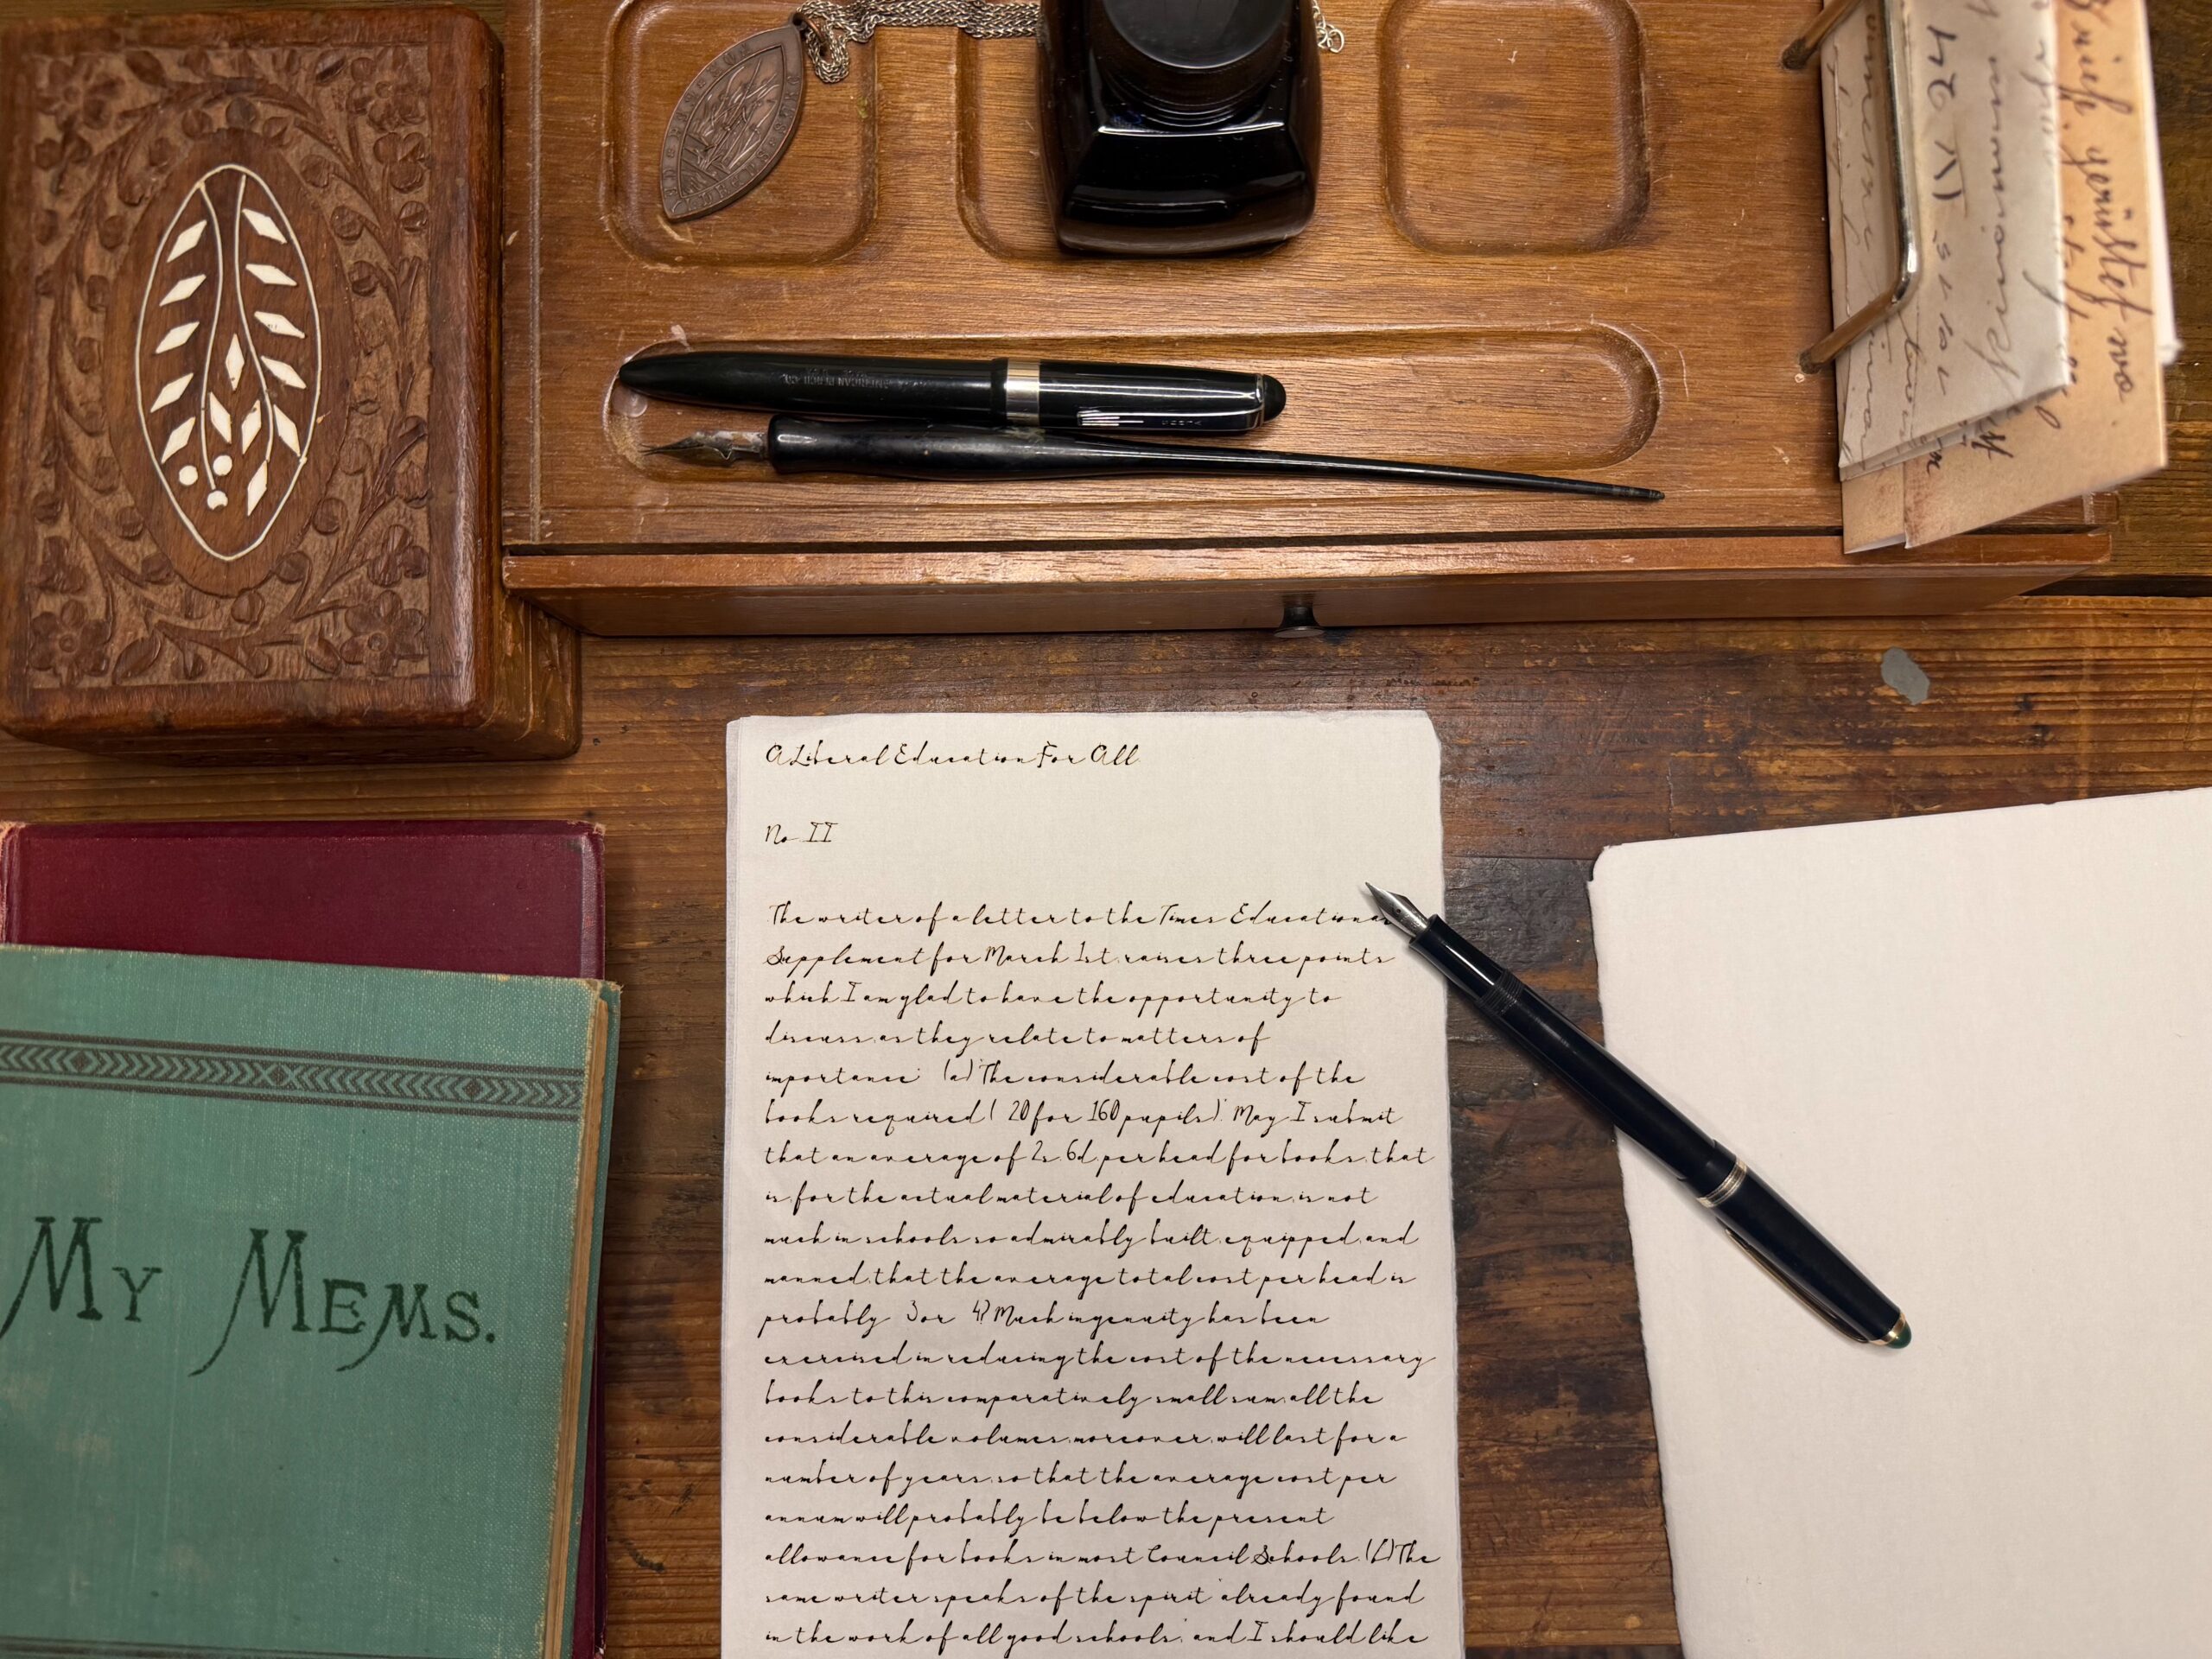 A Liberal Education For All
No II
The writer of a letter to the Times Educational
Supplement for March 1st, raises three points
which I am glad to have the opportunity to
discuss, as they relate to matters of
importance: (a) 'The considerable cost of the
books required ( 20 for 160 pupils).' May I submit
that an average of 2s. 6d. per head for books, that
is, for the actual material of education, is not
much in schools so admirably built, equipped, and
manned, that the average total cost per head is
probably 3 or 4? Much ingenuity has been
exercised in reducing the cost of the necessary
books to this comparatively small sum, all the
considerable volumes, moreover, will last for a
number of years, so that the average cost per
annum will probably be below the present
allowance for books in most Council Schools. (b) The
same writer speaks of the spirit 'already found
in the work of all good schools,' and I should like
MY MEMS.
AMERICAN PENCIL CO.
VENUS